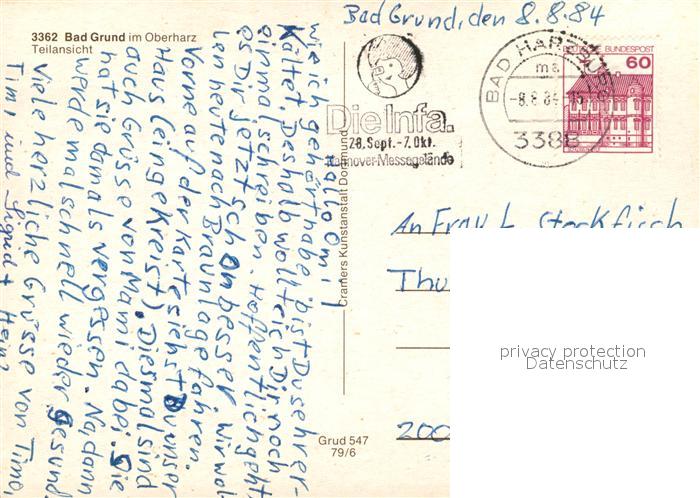 3362 Bad Grund im Oberharz
Teilansicht
Bad Grund, den 8.8.84
Hallo Omi!
wie ich gehört habe, bist Du sehr er-
kältet. Deshalb wollte ich Dir noch
einmal schreiben. Hoffentlich geht
es Dir jetzt schon besser. Wir wol-
len heute nach Braunlage fahren.
Vorne auf der Karte siehst Du unser
Haus (eingekreist). Diesmal sind
auch Grüsse von Mami dabei. Sie
hat sie damals vergessen. Na, dann
werde mal schnell wieder gesund.
Viele herzliche Grüsse von Timo
Timi und Sigrid + Heinz
Cramers Kunstanstalt Dortmund
Grud 547
79/6
Die Infa.
28. Sept.-7. Okt.
Hannover-Messegelände
BAD HARZBURG
ma
-8.8.84-15
3388
DEUTSCHE BUNDESPOST
60
An Frau L. Stockfisch
Thu
200
privacy protection
Datenschutz